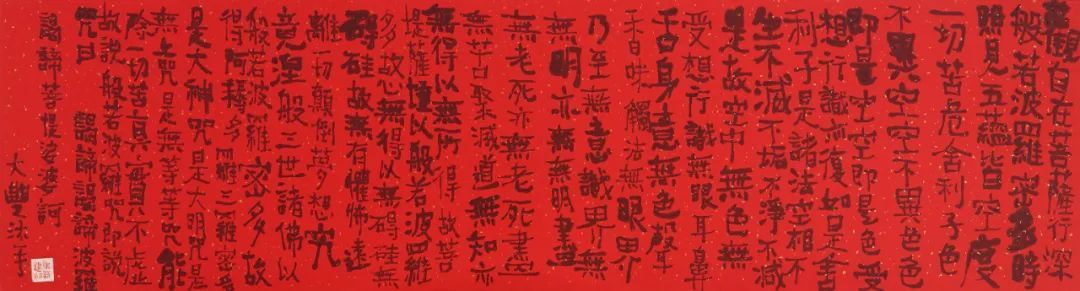 觀自在菩薩行深
般若波羅密多時
照見五蘊皆空度
一切苦危舍利子色
不異空空不異色色
即是空空即是色受
想行識亦復如是舍
利子是諸法空相不
生不滅不垢不淨不減
是故空中無色無
受想行識無眼耳鼻
舌身意無色聲
香味觸法無眼界
乃至無意識界無
無明亦無無明盡
無老死亦無老死盡
無苦集滅道無知亦
無得以無所得故菩
提薩埵以般若波羅
多故心無得以無碍硅無
碍硅故無有懼怖遠
離一切顛倒夢想究
竟涅般三世諸佛以
般若波羅密多故
得阿耨多羅三
是大神咒是大明咒是
無上咒是無等等咒能
除一切苦真實不虛
故説般若波羅咒即説
咒曰 謁諦謁諦波羅
謁諦菩提娑婆訶
大豐法